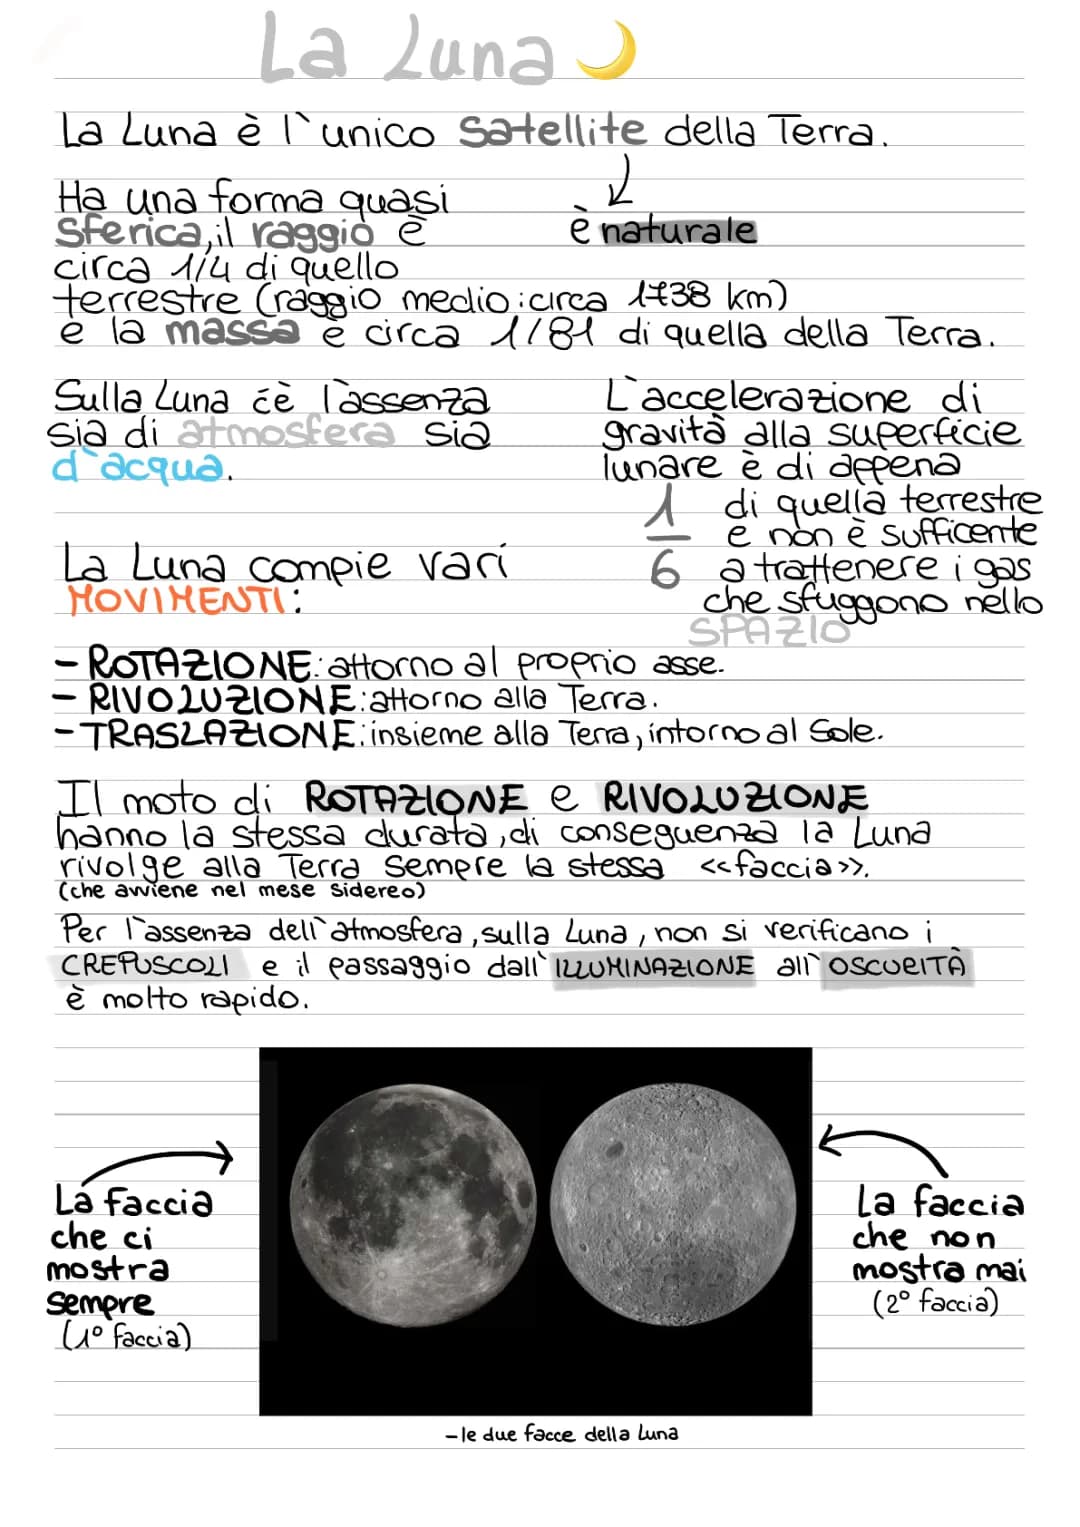 La Luna 🌙
La Luna è l'unico satellite della Terra.
è naturale
Ha una forma quasi
sferica, il raggio è
circa 1/4 di quello
terrestre (raggio medio: circa 1738 km)
e la massa è circa 1/81 di quella della Terra.
Sulla Luna c'è l'assenza
sia di atmosfera sia
d'acqua.
L'accelerazione di
gravità alla superficie
lunare è di appena
1/6 di quella terrestre
e non è sufficente
a trattenere i gas
che sfuggono nello
SPAZIO
La Luna compie vari
MOVIMENTI:
- ROTAZIONE: attorno al proprio asse.
- RIVOLUZIONE: attorno alla Terra.
- TRASLAZIONE: insieme alla Terra, intorno al Sole.
Il moto di ROTAZIONE e RIVOLUZIONE
hanno la stessa durata, di conseguenza la Luna
rivolge alla Terra sempre la stessa <<faccia>>.
(che avviene nel mese sidereo)
Per l'assenza dell'atmosfera, sulla Luna, non si verificano i
CREPUSCOLI e il passaggio dall'ILLUMINAZIONE all'OSCURITÀ
è molto rapido.
La faccia
che ci
mostra
sempre
(1° faccia)
La faccia
che non
mostra mai
(2° faccia)
- le due facce della Luna